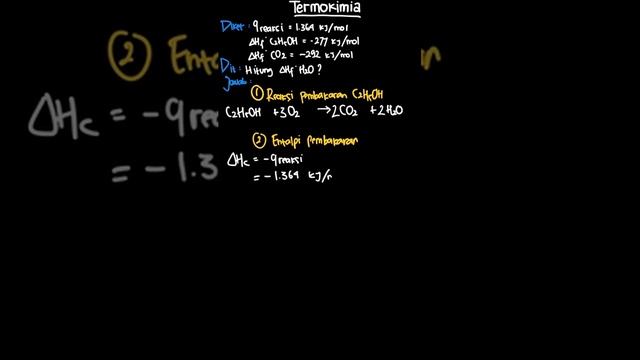 Termokimia
Diket : qreaksi = 1.364 kJ/mol
ΔHf C2H5OH = -277 kJ/mol
ΔHf CO2 = -292 kJ/mol
Dit : Hitung ΔHf H2O ?
Jawab :
① Reaksi pembakaran C2H5OH
C2H5OH + 3O2 → 2CO2 + 2H2O
② Entalpi pembakaran
ΔHc = -qreaksi
= -1.364 kJ/
② Enta
ΔHc = -9rea
= -1.3